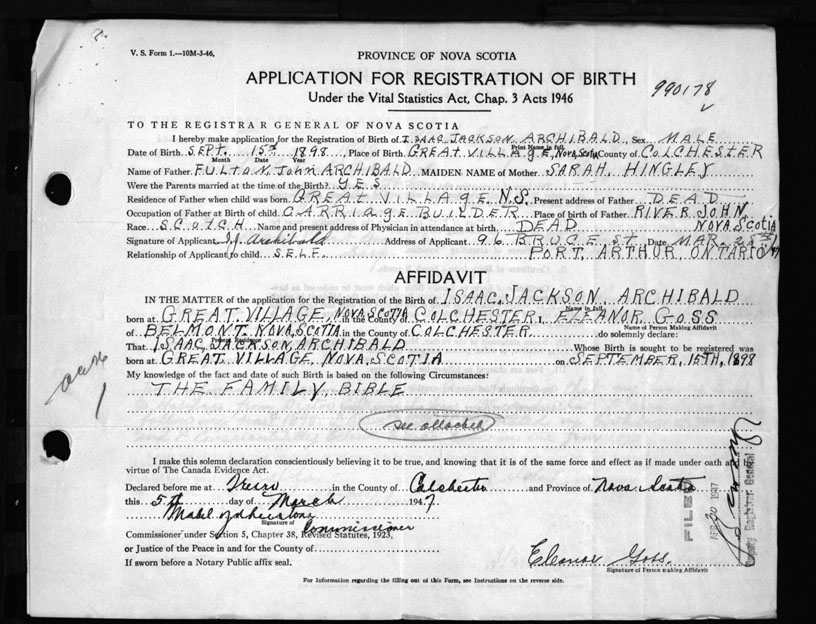 V. S. Form 1.—10M-3-46.
PROVINCE OF NOVA SCOTIA
APPLICATION FOR REGISTRATION OF BIRTH
990178
Under the Vital Statistics Act, Chap. 3 Acts 1946
TO THE REGISTRAR GENERAL OF NOVA SCOTIA
I hereby make application for the Registration of Birth of ISAAC JACKSON ARCHIBALD, Sex MALE
Print Name in full
Date of Birth SEPT. 15TH 1898, Place of Birth GREAT VILLAGE, NOVA SCOTIA County of COLCHESTER
Month Date Year
Name of Father FULTON John ARCHIBALD MAIDEN NAME of Mother SARAH HINGLEY
Were the Parents married at the time of the Birth? YES
Residence of Father when child was born GREAT VILLAGE N.S. Present address of Father DEAD
Occupation of Father at Birth of child CARRIAGE BUILDER Place of birth of Father RIVER JOHN
Race SCOTCH Name and present address of Physician in attendance at birth DEAD NOVA SCOTIA
Signature of Applicant I J Archibald Address of Applicant 96 BRUCE ST. Date MAR.
Relationship of Applicant to child SELF PORT ARTHUR, ONTARIO
AFFIDAVIT
IN THE MATTER of the application for the Registration of the Birth of ISAAC JACKSON ARCHIBALD
Name in full
born at GREAT VILLAGE, NOVA SCOTIA in the County of COLCHESTER I, ELEANOR GOSS
Name of Person Making Affidavit
of BELMONT NOVA SCOTIA in the County of COLCHESTER do solemnly declare:
Present Residence
That ISAAC JACKSON ARCHIBALD Whose Birth is sought to be registered was
born at GREAT VILLAGE, NOVA SCOTIA on SEPTEMBER, 15TH, 1898
My knowledge of the fact and date of such Birth is based on the following Circumstances:
THE FAMILY BIBLE
see attached
I make this solemn declaration conscientiously believing it to be true, and knowing that it is of the same force and effect as if made under oath and
virtue of The Canada Evidence Act.
Declared before me at Truro in the County of Colchester and Province of Nova Scotia
this 5th day of March 1947
Mabel Johnstone
Signature of
Commissioner
Commissioner under Section 5, Chapter 38, Revised Statutes, 1923,
or Justice of the Peace in and for County of
If sworn before a Notary Public affix seal.
Eleanor Goss
Signature of Person making Affidavit
For Information regarding the filling out of this Form, see Instructions on the reverse side.
FILED
Deputy Registrar General